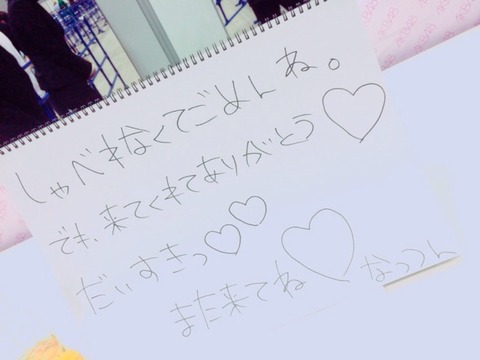 しゃべれなくてごめんね。
でも、来てくれてありがとう♡
だいすきっ♡♡
また来てね♡ なつつん